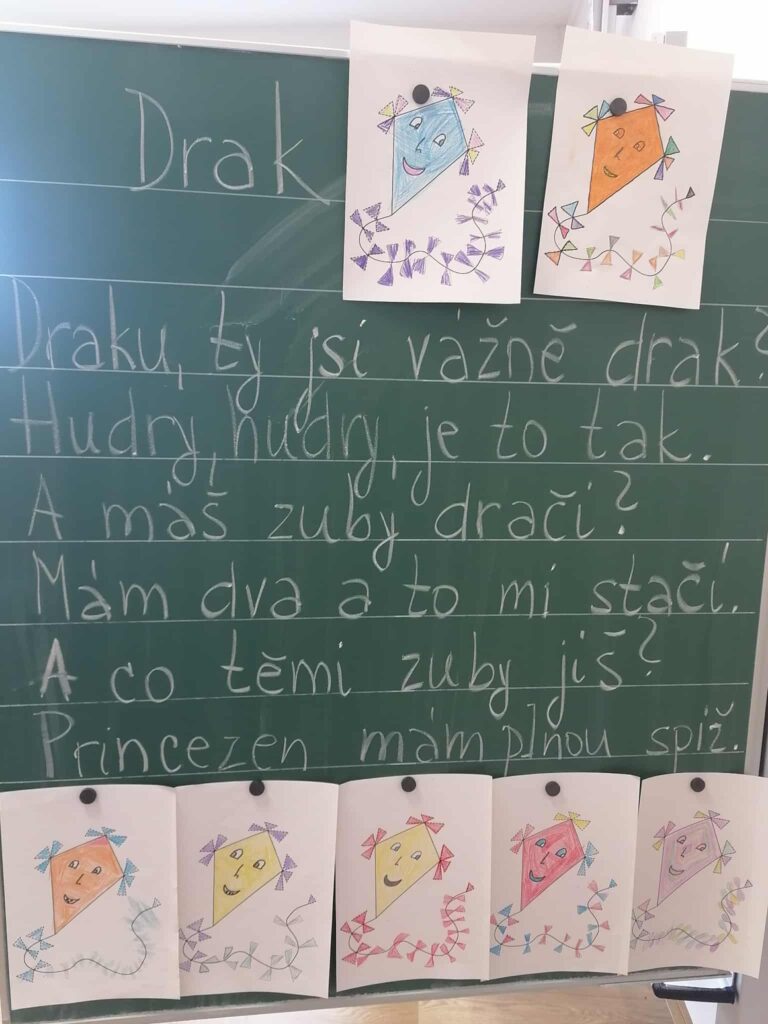 Drak
Draku, ty jsi vážně drak?
Hudry, hudry, je to tak.
A máš zuby dračí?
Mám dva a to mi stačí.
A co těmi zuby jíš?
Princezen mám plnou spíž.